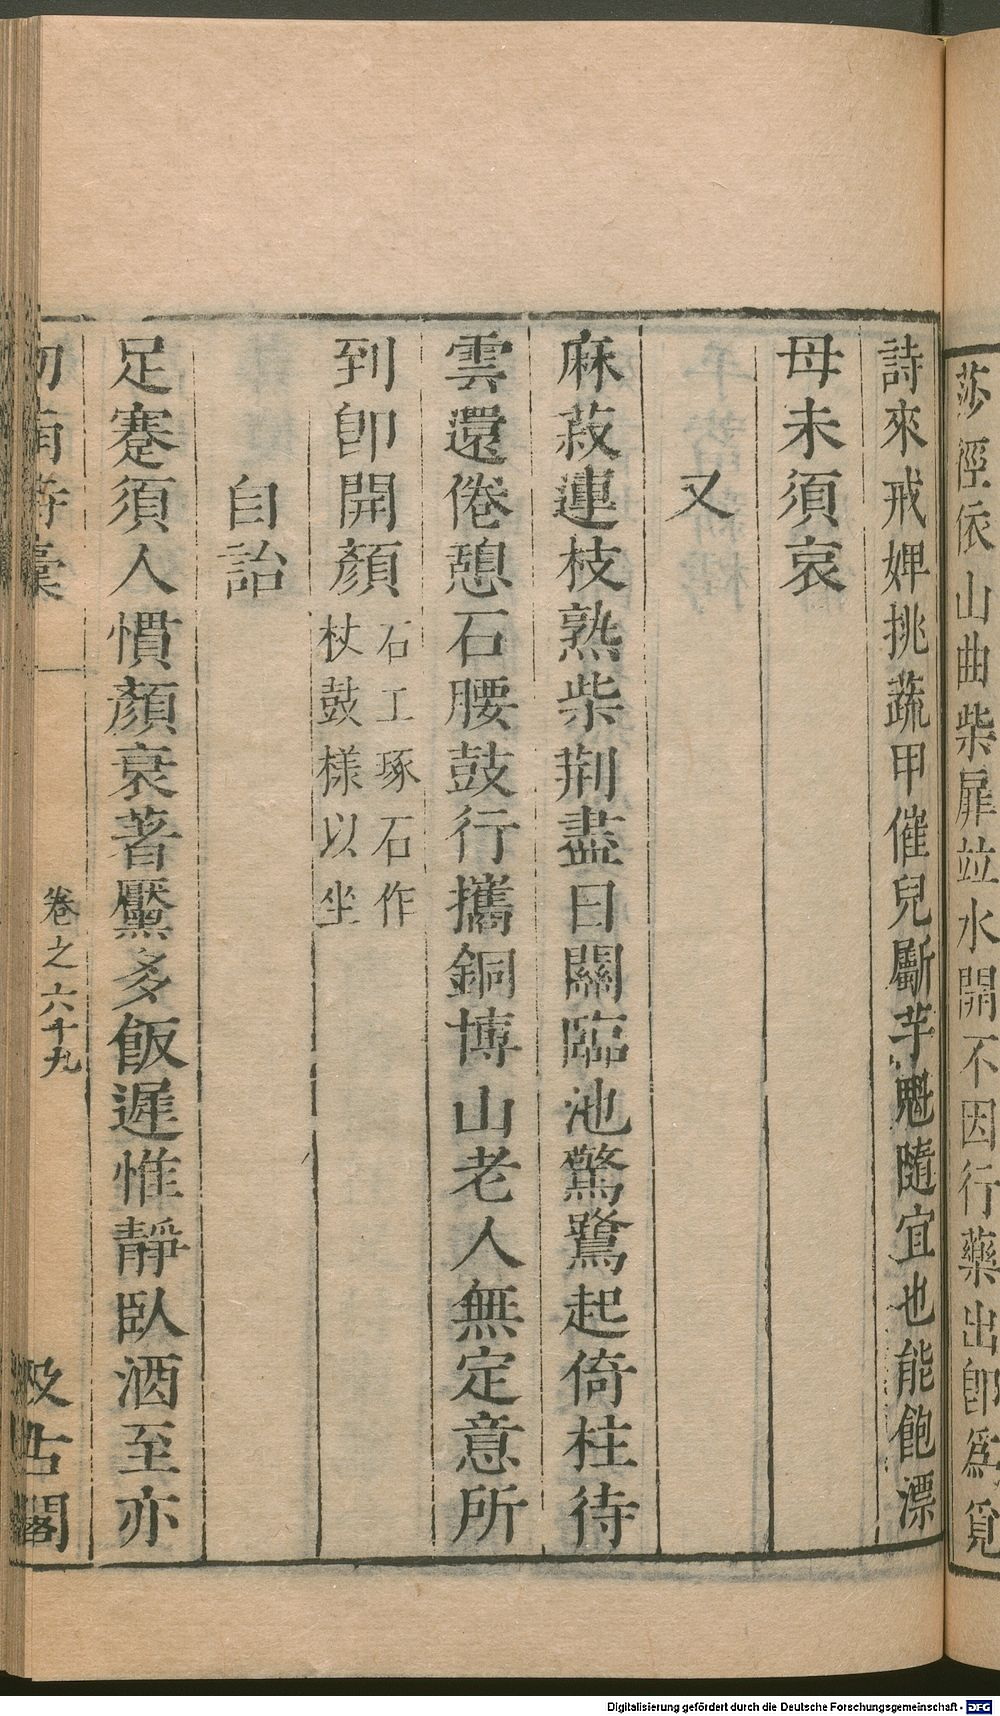 莎徑依山曲柴扉竝水開不因行藥出卽爲覓
詩來戒婢挑蔬甲催兒斸芋魁隨宜也能飽漂
母未須哀
又
麻菽連枝熟柴荆盡日關臨池驚鷺起倚柱待
雲還倦憩石腰鼓行攜銅博山老人無定意所
到卽開顏
石工琢石作
杖鼓樣以坐
自詒
足蹇須人慣顏衰著黶多飯遲惟靜臥酒至亦
劒南詩稾
卷之六十九
汲古閣
Digitalisierung gefördert durch die Deutsche Forschungsgemeinschaft - DFG